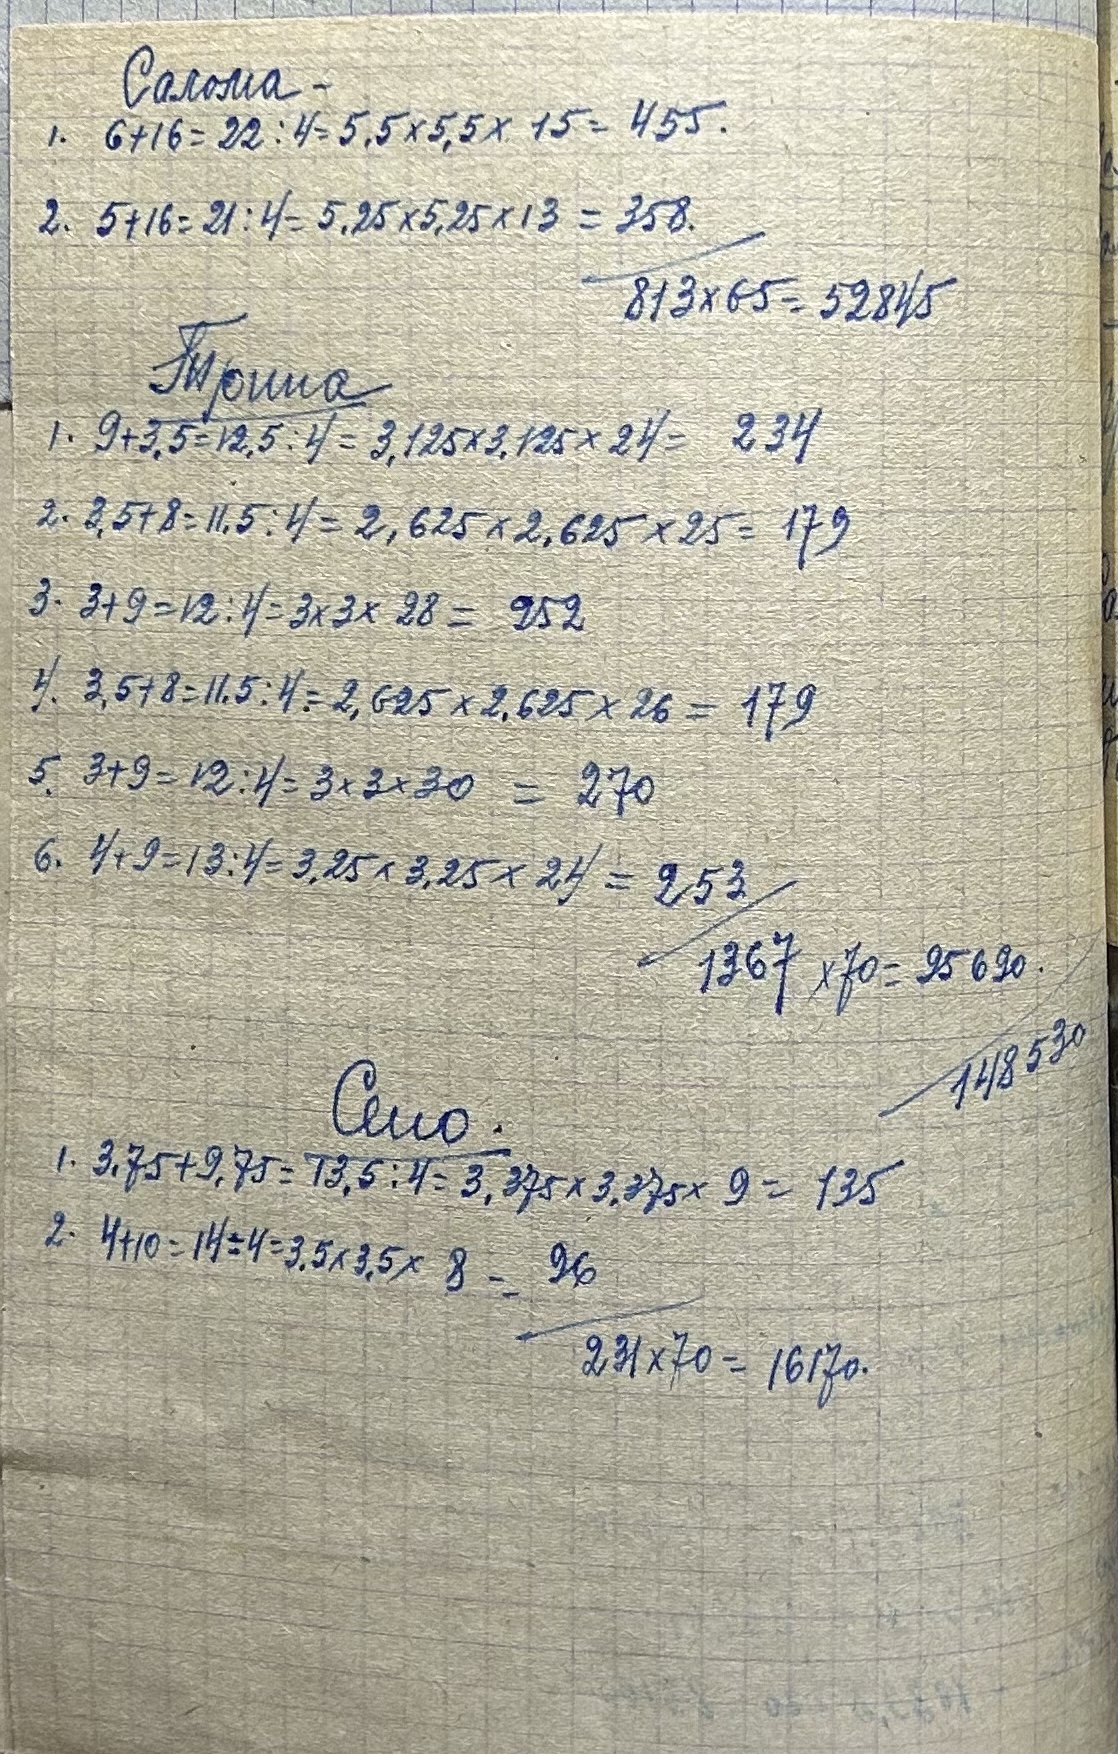 Солома -
1. 6+16=22:4=5,5×5,5× 15= 455.
2. 5+16=21:4= 5,25×5,25×13 = 358.
813×65= 52845
1. 9+3,5=12,5:4= 3,125×3,125× 24= 234
2. 3,5+8=11.5:4= 2,625×2,625 ×25= 179
3. 3+9=12:4=3×3× 28= 252
4. 3,5+8=11.5:4=2,625×2,625×26= 179
5. 3+9=12:4=3×3×30 = 270
6. 4+9=13:4=3,25×3,25× 24 = 253
1367 ×70= 95690.
148530
Сено.
1. 3,75+9,75= 13,5:4= 3,375×3,375× 9= 135
2. 4+10=14:4=3,5×3,5× 8 = 96
231×70= 16170.